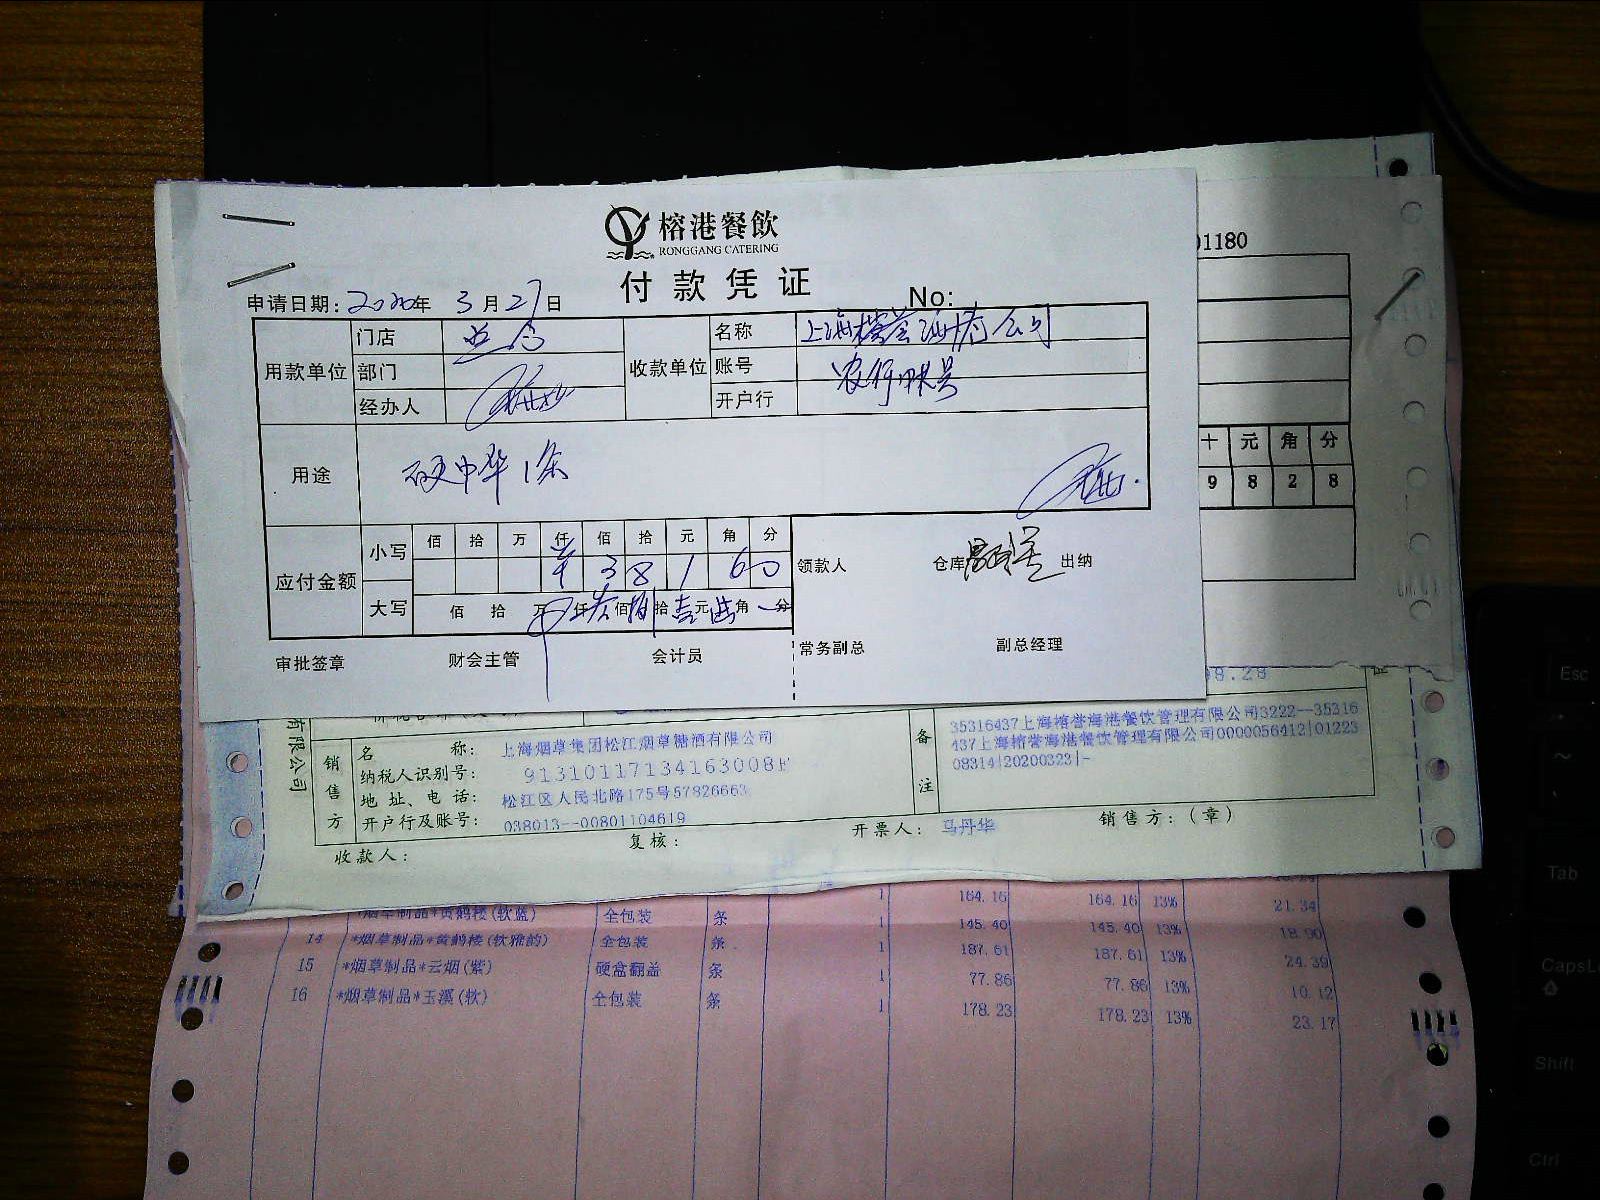 榕港餐飲
RONGGANG CATERING
付款凭证
申请日期：2020年 3月27日 No:
用款单位 门店 收款单位 名称 上海榕誉海港公司
部门 账号 农行账号
经办人 开户行
用途 硬中华1条
应付金额 小写 佰 拾 万 仟 佰 拾 元 角 分
3 8 1 6 0
大写 佰 拾 万 仟 佰 拾 元 角 分
领款人 仓库 出纳
审批签章 财会主管 会计员 常务副总 副总经理
01180
十 元 角 分
9 8 2 8
98.28
有限公司
销售方
名 称： 上海烟草集团松江烟草糖酒有限公司
纳税人识别号： 91310117134163008F
地 址、电 话： 松江区人民北路175号57826663
开户行及账号： 038013--00801104619
备注
35316437上海榕誉海港餐饮管理有限公司3222--35316
437上海榕誉海港餐饮管理有限公司0000056412|01223
08314|20200323|-
收款人： 复核： 开票人： 马丹华 销售方：（章）
*烟草制品*黄鹤楼(软蓝) 全包装 条 1 164.16 164.16 13% 21.34
14 *烟草制品*黄鹤楼(软雅韵) 全包装 条 1 145.40 145.40 13% 18.90
15 *烟草制品*云烟(紫) 硬盒翻盖 条 1 187.61 187.61 13% 24.39
16 *烟草制品*玉溪(软) 全包装 条 1 77.86 77.86 13% 10.12
1 178.23 178.23 13% 23.17
Esc
~
Tab
CapsL
Shift
Ctrl